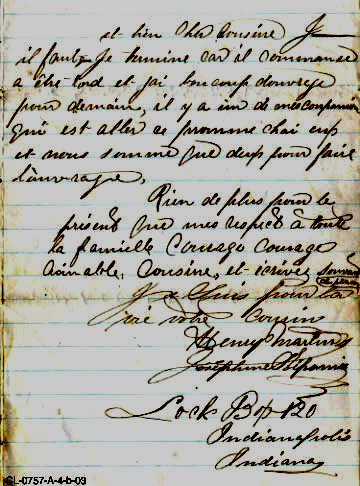 et bien Cher Cousine Je
il faut Je termine car il commence
a etre tad et jai boucoup douvrge
pour demain, il y a un de mes companion
qui est aller se promme chai eus
et nous somme que deus pour faire
l'auvrage,
Rien de plus pour le
present que mes respects à toute
la famielle Courage Courage
aimable, Cousine, et ecrivez souvans
Je Suis pour la
vie votre Cousin
Henry Martin
Josephine
Lock Box 120
Indianapolis
Indiana
CL-0757-A-4-b-03